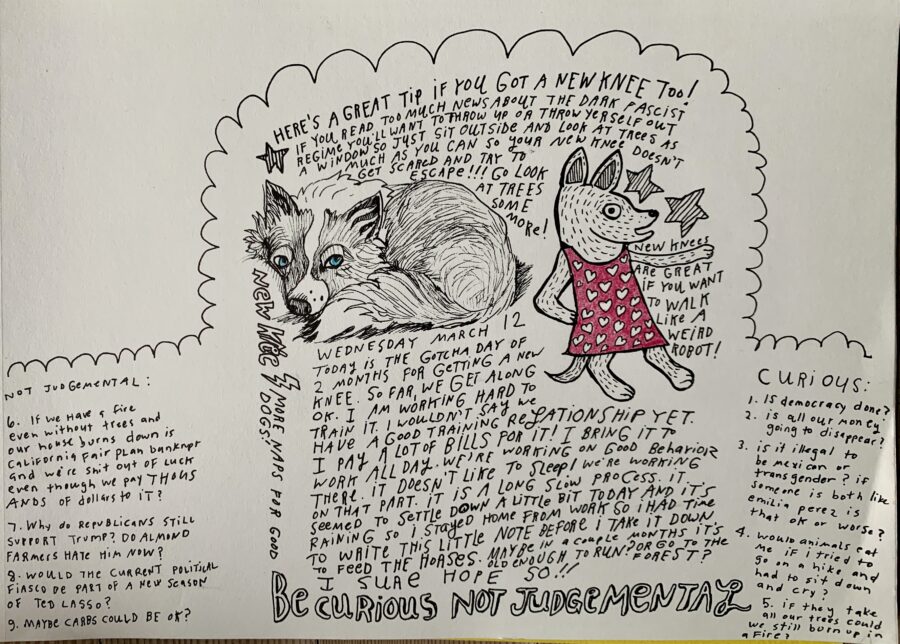 HERE'S A GREAT TIP IF YOU GOT A NEW KNEE TOO!
IF YOU READ TOO MUCH NEWS ABOUT THE DARK FASCIST
REGIME YOU'LL WANT TO THROW UP OR THROW YERSELF OUT
A WINDOW SO JUST SIT OUTSIDE AND LOOK AT TREES AS
MUCH AS YOU CAN SO YOUR NEW KNEE DOESN'T
GET SCARED AND TRY TO
ESCAPE!!! GO LOOK
AT TREES
SOME
MORE!
NEW KNEES
ARE GREAT
IF YOU WANT
TO WALK
LIKE A
WEIRD
ROBOT!
NEW KNEE
MORE NAPS FOR GOOD
DOGS.
WEDNESDAY MARCH 12
TODAY IS THE GOTCHA DAY OF
2 MONTHS FOR GETTING A NEW
KNEE. SO FAR, WE GET ALONG
OK. I AM WORKING HARD TO
TRAIN IT. I WOULDN'T SAY WE
HAVE A GOOD TRAINING RELATIONSHIP YET.
I PAY A LOT OF BILLS FOR IT! I BRING IT TO
WORK ALL DAY. WE'RE WORKING ON GOOD BEHAVIOR
THERE. IT DOESN'T LIKE TO SLEEP! WE'RE WORKING
ON THAT PART. IT IS A LONG SLOW PROCESS. IT
SEEMED TO SETTLE DOWN A LITTLE BIT TODAY AND IT'S
RAINING SO I STAYED HOME FROM WORK SO I HAD TIME
TO WRITE THIS LITTLE NOTE BEFORE I TAKE IT DOWN
TO FEED THE HORSES. MAYBE IN A COUPLE MONTHS IT'S
OLD ENOUGH TO RUN? OR GO TO THE
FOREST?
I SURE HOPE SO!!
BE CURIOUS NOT JUDGEMENTAL
NOT JUDGEMENTAL:
6. IF WE HAVE A FIRE
EVEN WITHOUT TREES AND
OUR HOUSE BURNS DOWN IS
CALIFORNIA FAIR PLAN BANKRUPT
AND WE'RE SHIT OUT OF LUCK
EVEN THOUGH WE PAY THOUS
ANDS OF DOLLARS TO IT?
7. WHY DO REPUBLICANS STILL
SUPPORT TRUMP? DO ALMOND
FARMERS HATE HIM NOW?
8. WOULD THE CURRENT POLITICAL
FIASCO BE PART OF A NEW SEASON
OF TED LASSO?
9. MAYBE CARBS COULD BE OK?
CURIOUS:
1. IS DEMOCRACY DONE?
2. IS ALL OUR MONEY
GOING TO DISAPPEAR?
3. IS IT ILLEGAL TO
BE MEXICAN OR
TRANSGENDER? IF
SOMEONE IS BOTH LIKE
EMILIA PEREZ IS
THAT OK OR WORSE?
4. WOULD ANIMALS EAT
ME IF I TRIED TO
GO ON A HIKE AND
HAD TO SIT DOWN
AND CRY?
5. IF THEY TAKE
ALL OUR TREES COULD
WE STILL BURN UP IN
A FIRE?